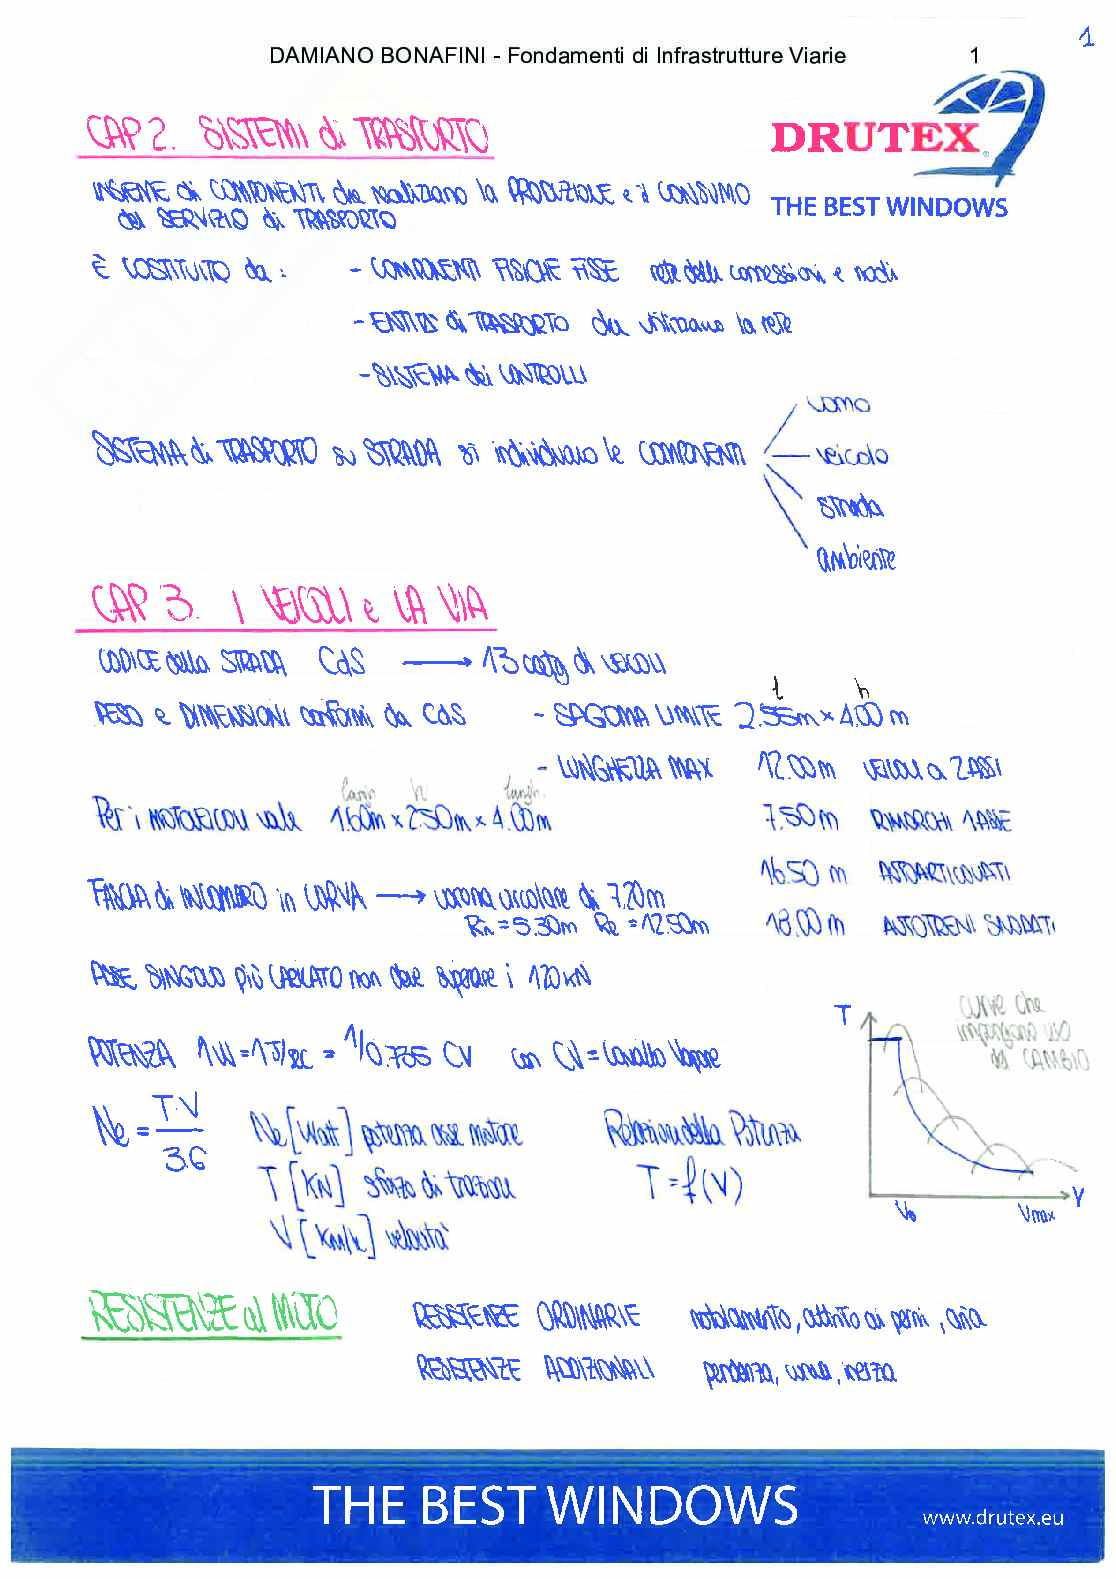 1
DAMIANO BONAFINI - Fondamenti di Infrastrutture Viarie 1
DRUTEX
THE BEST WINDOWS
CAP 2. SISTEMI di TRASPORTO
INSIEME di COMPONENTI che realizzano la PRODUZIONE e il CONSUMO
del SERVIZIO di TRASPORTO
È COSTITUITO da: - COMPONENTI FISICHE FISSE rete delle connessioni e nodi
- ENTITA' di TRASPORTO che utilizzano la rete
- SISTEMA dei CONTROLLI
SISTEMA di TRASPORTO su STRADA si individuano le COMPONENTI
uomo
veicolo
strada
ambiente
CAP 3. I VEICOLI e LA VIA
CODICE della STRADA CdS → 13 categ di VEICOLI
l h
PESO e DIMENSIONI conformi da CdS - SAGOMA LIMITE 2.55m x 4.00 m
- LUNGHEZZA MAX 12.00 m VEICOLI a 2 ASSI
largh h lungh.
Per i MOTOVEICOLI vale 1.60m x 2.50m x 4.00m
7.50 m RIMORCHI 1 ASSE
16.50 m AUTOARTICOLATI
FASCIA di INGOMBRO in CURVA → corona circolare di 7.20m
Ri = 5.30m Re = 12.50m
18.00 m AUTOTRENI SNODATI
ASSE SINGOLO più CARICATO non deve superare i 120 KN
POTENZA 1W = 1J/sec = 1/0.735 CV con CV = Cavallo Vapore
Ne = T·V / 3.6
Ne [Watt] potenza asse motore
T [KN] sforzo di trazione
V [Km/h] velocità
Relazione della Potenza
T = f(V)
T
curve che
impongono uso
del CAMBIO
V
Vo
Vmax
RESISTENZE al MOTO
RESISTENZE ORDINARIE rotolamento, attrito ai perni, aria
RESISTENZE ADDIZIONALI pendenza, curva, inerzia
THE BEST WINDOWS
www.drutex.eu